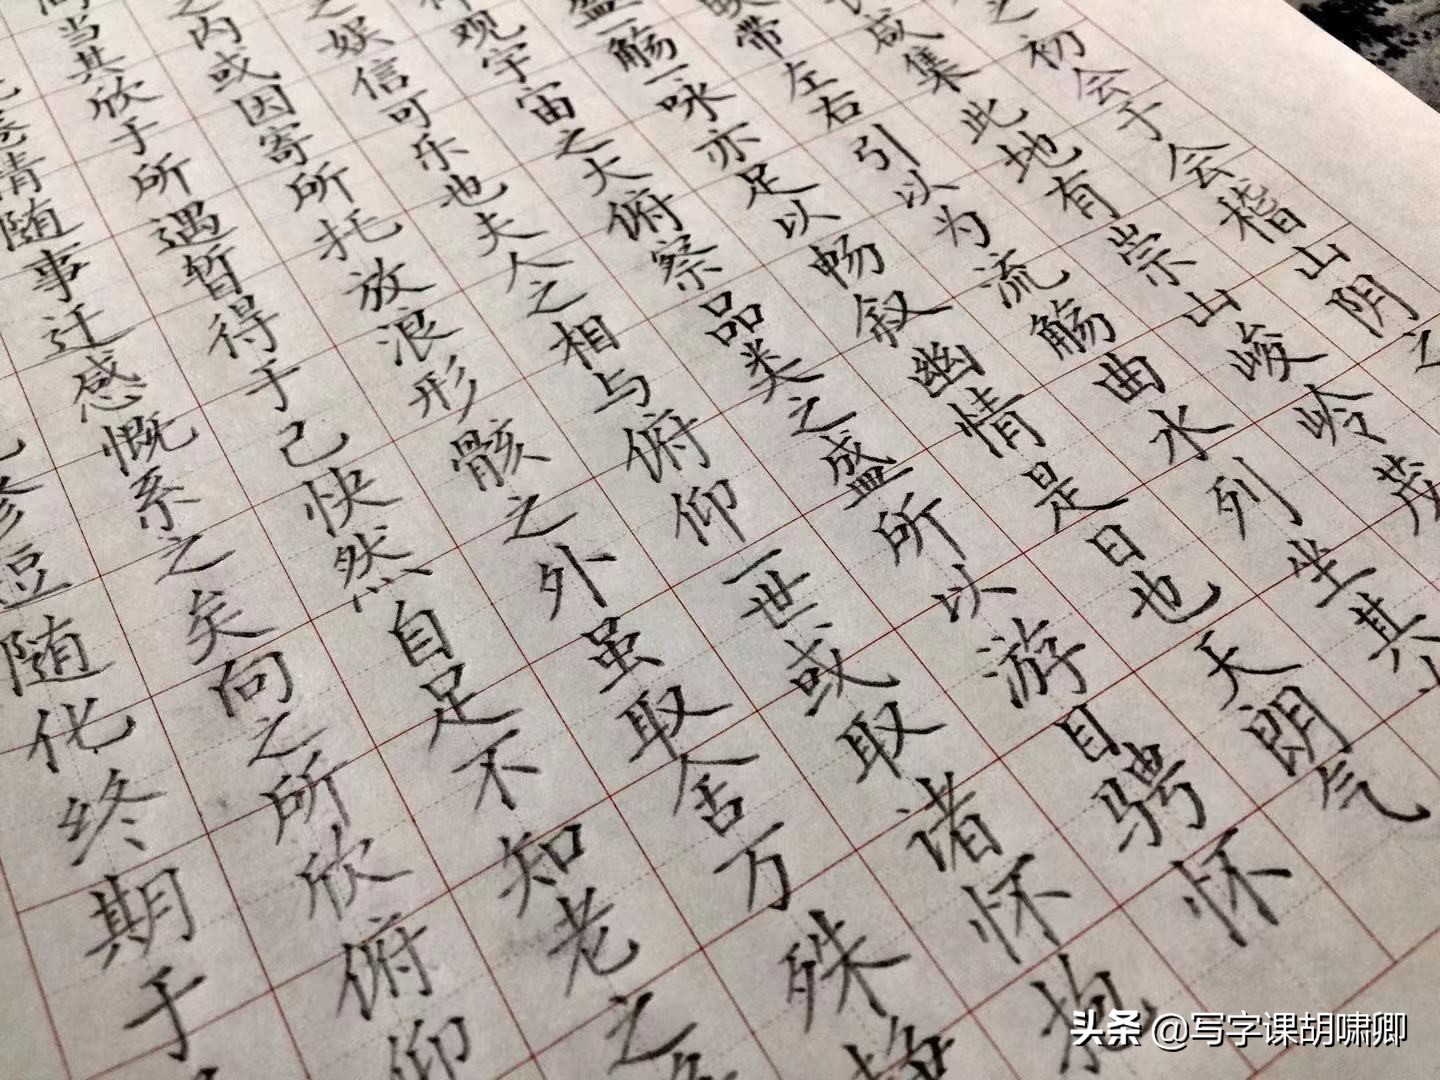 之初会于会稽山阴之
咸集此地有崇山峻岭茂
映带左右引以为流觞曲水列坐其
盛一觞一咏亦足以畅叙幽情是日也天朗气
观宇宙之大俯察品类之盛所以游目骋怀
之娱信可乐也夫人之相与俯仰一世或取诸怀抱
之内或因寄所托放浪形骸之外虽取舍万殊静
当其欣于所遇暂得于己快然自足不知老之
情随事迁感慨系之矣向之所欣俯仰
修短随化终期于
头条 @写字课胡啸卿